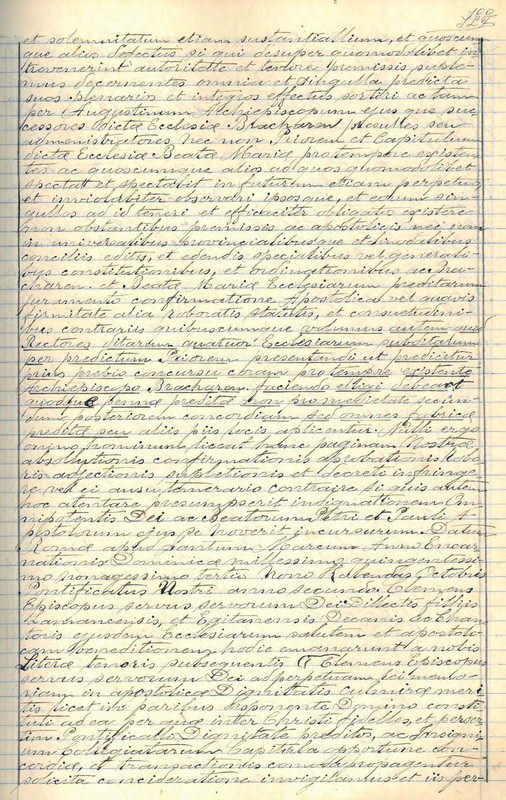 et solemnitatum etiam sustantiallium, et quoscum
que alios defectus si qui desuper quomodolibet in
trovenerint autoritatte et tenore premissis suple
mus decernentes omnia et singulla predicta
suos plenarios et integros effectus sortiri ac tam
per Augustinum Archiepiscopum ejus que suc
cessores dictæ Ecclesiæ Bracharen præsulles seu
administratores nec non Priorem et Capitullum
dictæ Ecclesiæ Beatæ Mariæ pro tempore existen
tes ac quoscumque alios ad quos quomodolibet
spectatt et spectabit in futurum etiam perpetuo
et inviolabiter observari ipsosque, et eorum sin
gullos ad id teneri et efficaciter obligatos existere
non obstantibus premissis ac apostolicis nec non
in universalibus provincialibusque et sinodalibus
conciliis editis, et edendis specialibus vel generali
bus constitutionibus, et ordinationibus ac Bra
charen. et Beatæ Mariæ Ecclesiarum preditarum
juramento confirmatione Apostolica vel quavis
firmitate alia roboratis statutis, et consuetudini
bus contrariis quibuscumque volumus autem quod
Rectores ditarum quatuor Ecclesiarum subditarum
per predictum Priorem presentandi ut predicitur
prius prebio concursu coram pro tempore existente
Archiepiscopo Bracharen. faciendo elligi debeat
quodque pennæ preditæ non pro medietate secun
dum posteriorem concordiam sed omnes fabricæ
preditæ seu aliis piis locis aplicentur. Nulli ergo
omino hominum liceat hanc paginam Nostræ
absollutionis confirmationis aprobationis robo
ris adjectionis supletionis et decreti infringe
re vel ei ausu temerario contraire si quis autem
hoc atentare presumpserit indignationem Om
nipotentis Dei ac Beatorum Petri et Pauli A
postolorum ejus se noverit incursurum. Datum
Romæ apud santum Marcum Anno Encar
nationis Dominicæ millessimo quingentessi
mo nonagessimo tertio nono Kalendas Octobris
Pontificatus Nostri anno secundo. Clemens
Episcopus servus servorum Dei Dillectis filijis
Lamancensis, et Egitanensis Decanis ac Chan
toris ejusdem Ecclesiarum salutem et apostoli
cam beneditionem hodie emanarunt a nobis
Literæ tenoris subsequentis Clemens Episcopus
servus servorum Dei ad perpetuam
riam in apostolicæ Dignitatis culmine meri
tis licet in paribus disponente Domino consti
tuti ad ea per quæ inter Christi fidelles, et perser
tim Pontificalle Dignitate preditos, ac Insigni
um Collegiatarum Capitulla oportune con
cordiæ, et transactionis comoda propagentur
solicita concideratione invigilamus et iis per